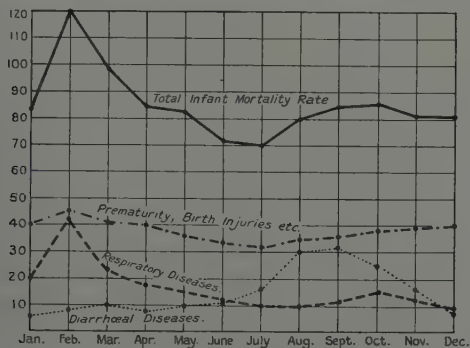 120
110
100
90
80
70
60
50
40
30
20
10
Total Infant Mortality Rate
Prematurity, Birth Injuries etc.
Respiratory Diseases.
Diarrhœal Diseases.
Jan. Feb. Mar. Apr. May. June July Aug. Sept. Oct. Nov. Dec.